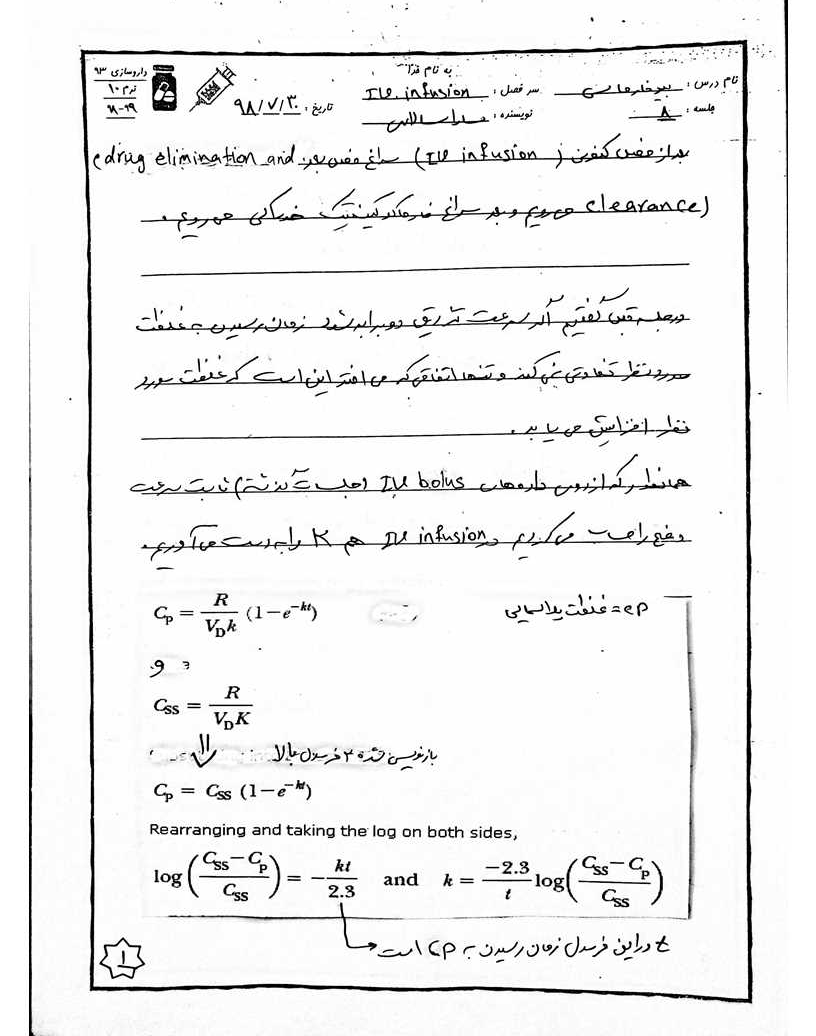 به نام خدا
نام درس: بیوفارماسی
سر فصل: IV infusion
تاریخ: ۹۸/۷/۳۰
داروسازی ۹۳
ترم ۱۰
۹۸-۹۹
جلسه: ۸
نویسنده:
بعد از مبحث کنونی (IV infusion) سراغ مبحث بعدی (drug elimination and
clearance) می رویم و بعد سراغ فارماکوکینتیک خوراکی می رویم.
در جلسه قبل گفتیم اگر سرعت تزریق دو برابر شود زمان رسیدن به غلظت
مورد نظر تفاوتی نمی کند و تنها اتفاقی که می افتد این است که غلظت مورد
نظر افزایش می یابد.
همانطور که از روی داروهای IV bolus (جلسات گذشته) ثابت سرعت
دفع را حساب می کردیم در IV infusion هم K را به دست می آوریم.
Cp = R / VDk (1−e^−kt)
Cp = غلظت پلاسمایی
و
Css = R / VDK
بازنویسی شده ۲ فرمول بالا
Cp = Css (1−e^−kt)
Rearranging and taking the log on both sides,
log((Css−Cp) / Css) = −kt / 2.3 and k = −2.3 / t log((Css−Cp) / Css)
t در این فرمول زمان رسیدن به Cp است
۱